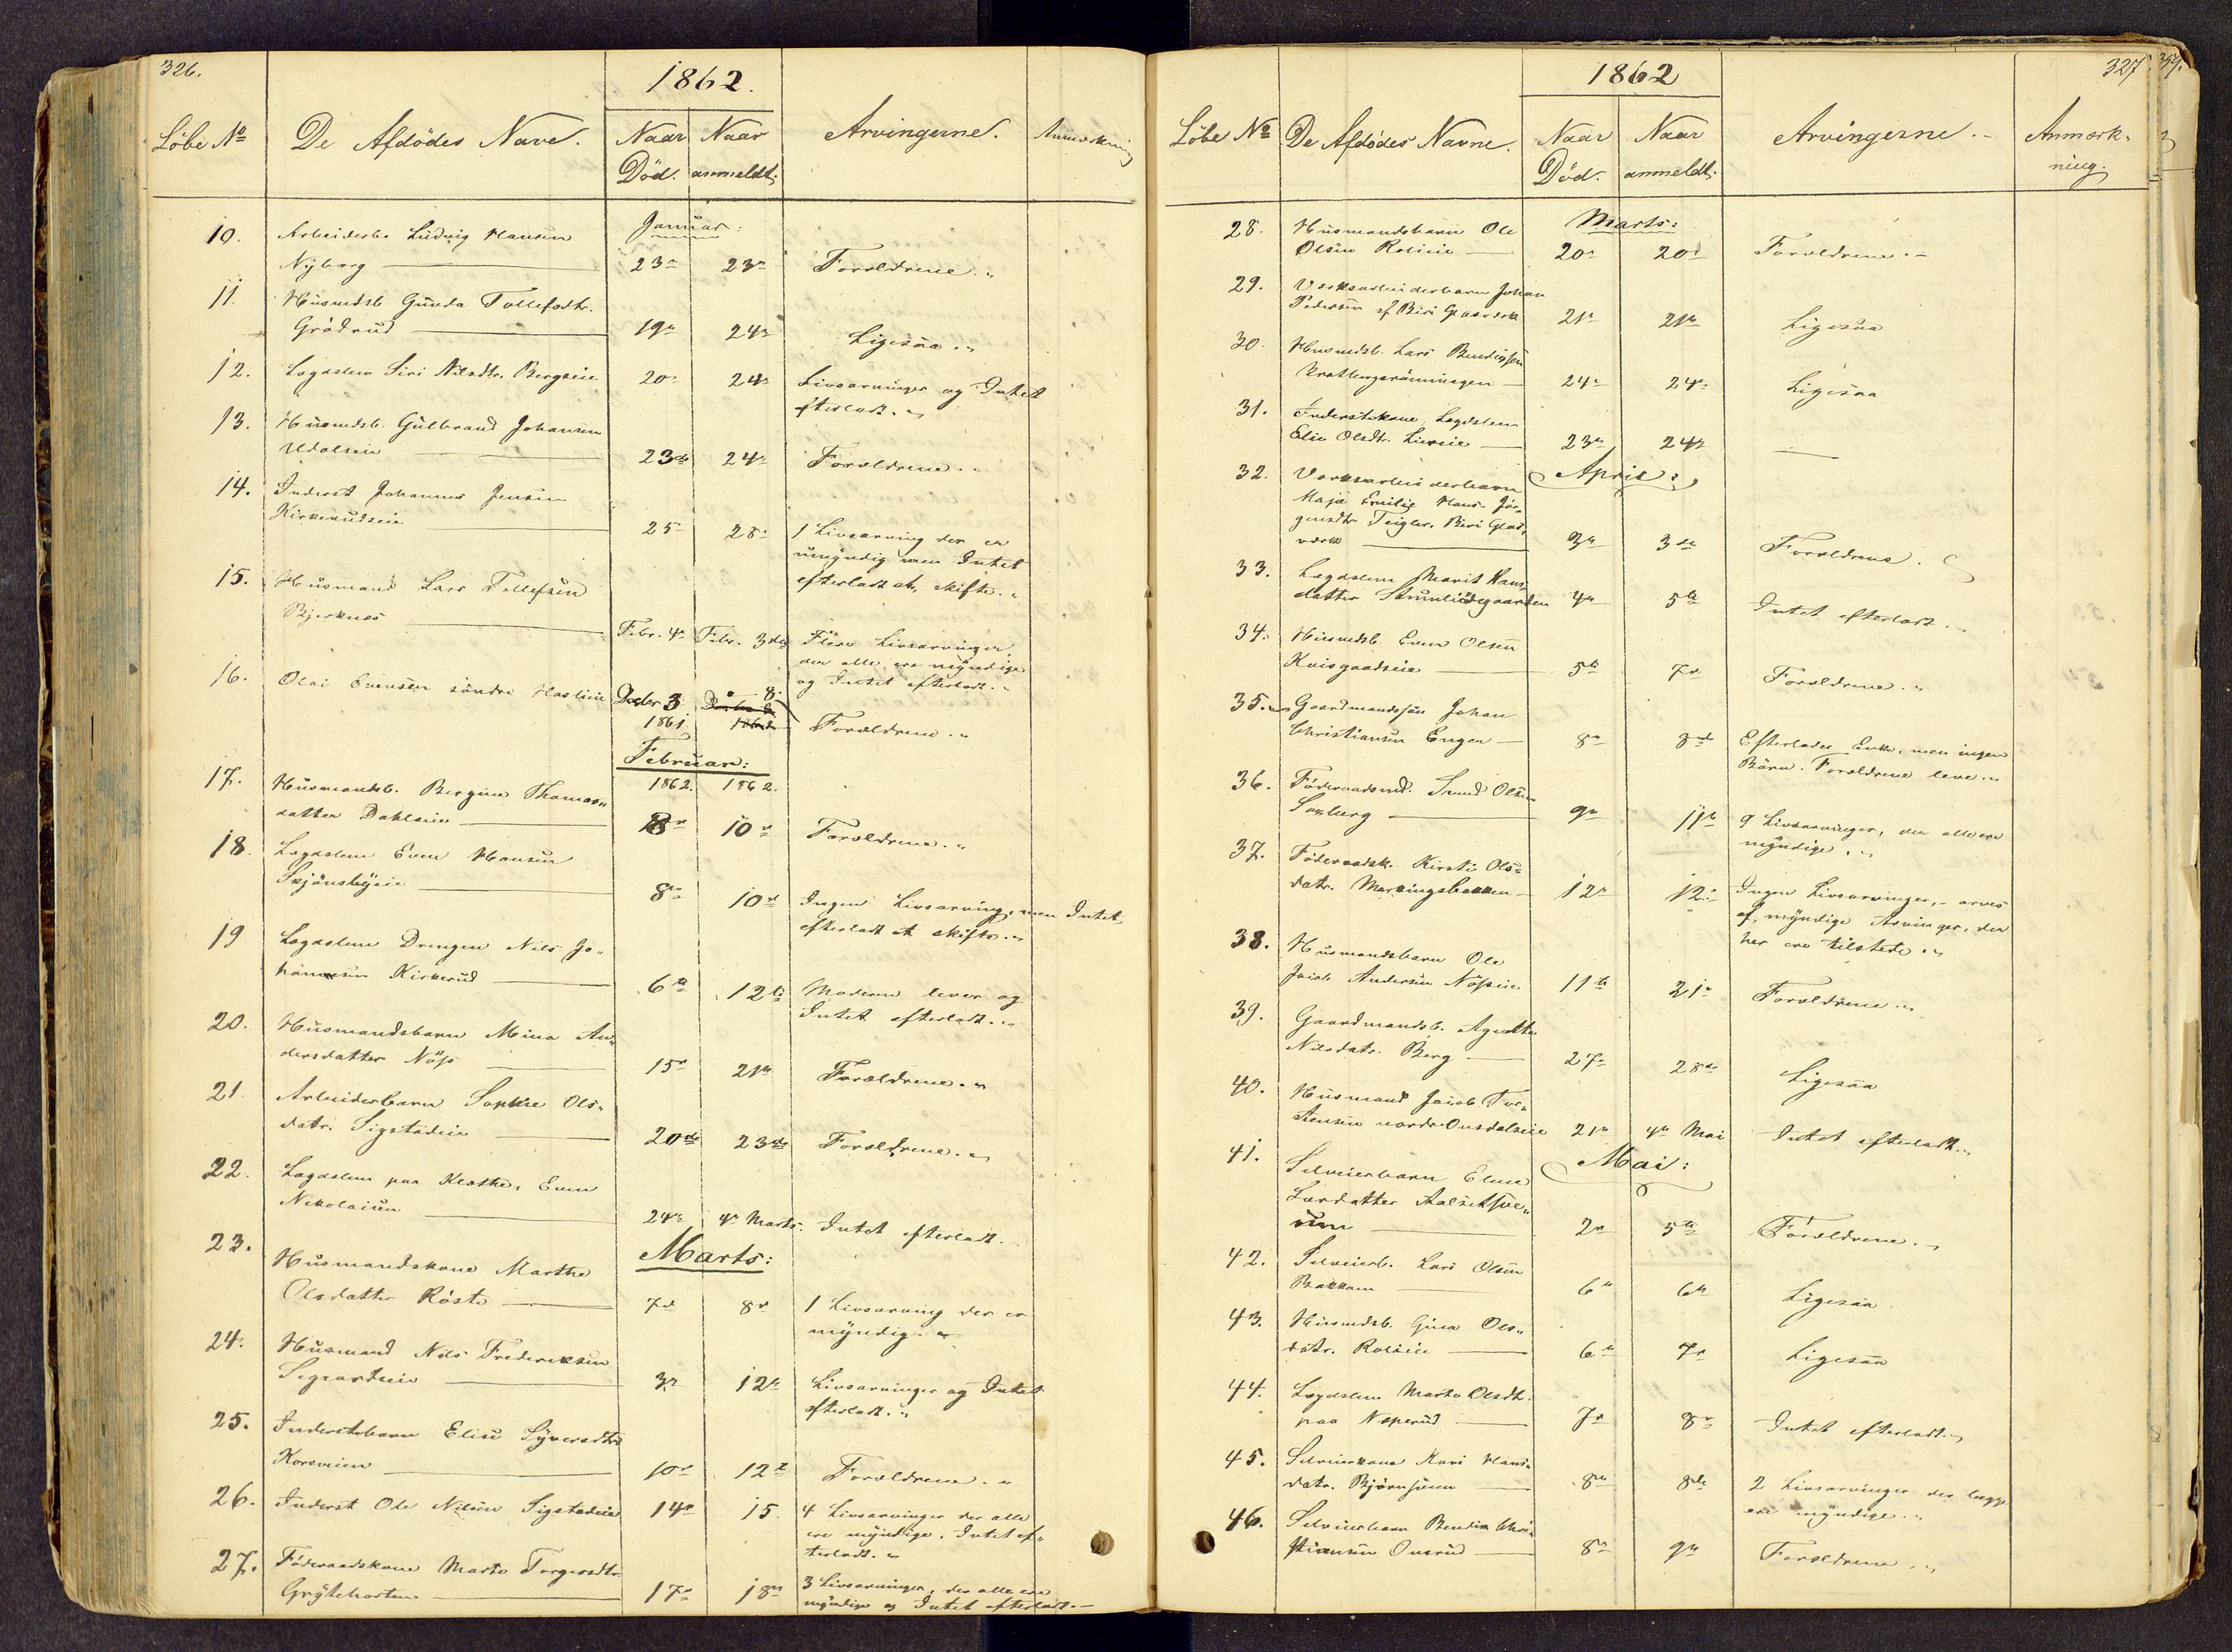 326.
1862.
Löbe No De Afdödes Navne. Naar Död. Naar anmeldt. Arvingerne. Anmærkning
Januar:
10. Arbeiderb. Ludvig Hansen
Nyborg 23de 23de Forældrene. "
11. Husmdsb. Gunda Tollefsdtr.
Grödrud 19de 24de Ligesaa. "
12. Lægdslem Siri Nilsdtr. Bergseie 20de 24de Livsarvinger og Intet
efterladt. "
13. Husmdsb. Gulbrand Johansen
23de 24de Forældrene. "
14. Inderst Johannes Jensen
Kirkerudseie 25 28de 1 Livsarving der er
umyndig men Intet
efterladt at skifte. "
15. Husmand Lars Tollefsen
Bjerknes Febr. 4de Febr. 3die Flere Livsarvinger,
der alle ere myndige
og Intet efterladt. "
16. Olai Evensen söndre Decbr 3 8.
1861. 1862 Forældrene. "
Februar:
1862. 1862.
17. Husmandsb. Bergine Thomas"
datter Dahlseie 8de 10de Forældrene. "
18. Lægdslem Even Hansen
8de 10de Ingen Livsarving, men Intet
efterladt at skifte. "
19 Lægdslem Drengen Nils Jo"
hannesen Kirkerud 6te 12te Moderen lever og
Intet efterladt. "
20. Husmandsbarn Mina An"
dersdatter Nöss 15de 21de Forældrene. "
21. Arbeiderbarn Sophie Ols"
datr. Sigstadeie 20de 23de Forældrene. "
22. Lægdslem paa Klæthe, Even
Nikolaisen 24de 4de Marts. Intet efterladt.
Marts:
23. Husmandskone Marthe
Olsdatter Röste 7de 8de 1 Livsarving der er
myndig. "
24. Husmand Nils Frederiksen
3die 12te Livsarvinger og Intet
efterladt. "
25. Inderstbarn Elise Syversdtr
Korsveien 10de 12te Forældrene. "
26. Inderst Ole Nilsen Sigstadeie 14de 15. 4 Livsarvinger der alle
ere myndige. Intet ef"
terladt. "
27. Föderaadskone Marte Torgersdtr.
17de 18de 3 Livsarvinger, der alle ere
myndige og Intet efterladt. -
327
1862
Löbe No De Afdödes Navne. Naar Död. Naar anmeldt. Arvingerne. - Anmærk-
ning.
Marts:
28. Husmandsbarn Ole
Olsen 20de 20de Forældrene. -
29. Værksarbeiderbarn Johan
Pedersen af Biri Glasværk 21de 21de Ligesaa
30. Husmdsb. Lars Bendigsen
24de 24de Ligesaa
31. Inderstkone, Lægdslem
Elie Olsdtr. 23de 24de —
April:
32. Værksarbeiderbarn
Maja Emilie Hans Jör"
gensdtr Teigler. Biri Glas"
værk 3die 3die Forældrene.
33. Lægdslem Marit Hans"
datter 4de 5te Intet efterladt. -
34. Husmdsb. Even Olsen
5te 7de Forældrene. "
35. Gaardmandssön Johan
Christiansen Engen 8de 8de Efterlader Enke, men ingen
Börn. Forældrene leve. "
36. Föderaadsmd. Olsen
9de 11te 9 Livsarvinger, der alle ere
myndige. "
37. Föderaadsk. Kirsti Ols"
datr. 12te 12te Ingen Livsarvinger, - arves
af myndige Arvinger, der
her ere tilstede. "
38. Husmandsbarn Ole
Jacob Andersen Nöseie 11te 21de Forældrene. "
39. Gaardmandsb. Agnethe
Nilsdatr. Berg 27de 28de Ligesaa
40. Husmand Jacob Tor"
stensen nordre Onsdalseie 21de 4de Mai Intet efterladt. "
Mai:
41. Selveierbarn Eline
Larsdatter 2den 5te Forældrene. -
42. Selveierb. Lars Olsen
Bakken 6te 6te Ligesaa.
43. Husmdsb. Gina Ols"
datr. 6te 7de Ligesaa
44. Lægdslem Marte Olsdtr.
paa Næperud 7de 8de Intet efterladt. "
45. Selveierkone Kari Hans"
datr. 8de 8de 2 Livsarvinger der begge
ere myndige. "
46. Selveierbarn Bendix Chri"
stiansen Onsrud 8de 9de Forældrene. "